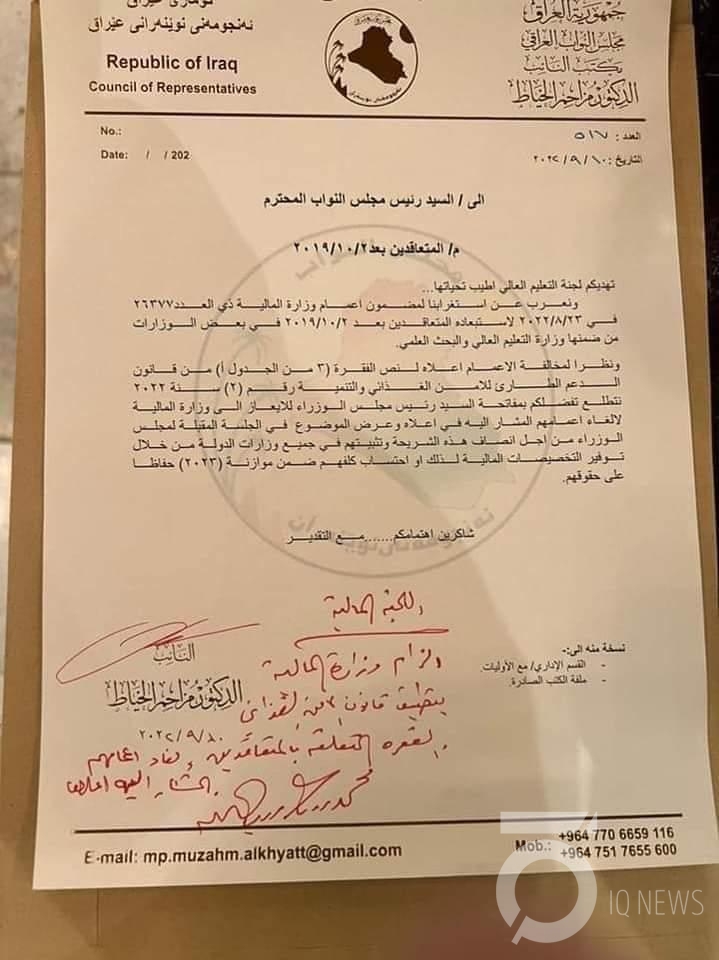 جمهورية العراق
مجلس النواب العراقي
مكتب النائب
الدكتور مزاحم الخياط
ئەنجومەنی نوێنەرانی عێراق
Republic of Iraq
Council of Representatives
No.:
Date: / / 202
العدد: ٥١٧
التاريخ: ٢٠٢٢/٩/١٠
الى / السيد رئيس مجلس النواب المحترم
م/ المتعاقدين بعد ٢٠١٩/١٠/٢
تهديكم لجنة التعليم العالي اطيب تحياتها...
ونعرب عن استغرابنا لمضمون اعمام وزارة المالية ذي العدد ٢٦٣٧٧
في ٢٠٢٢/٨/٢٣ لاستبعاده المتعاقدين بعد ٢٠١٩/١٠/٢ في بعض الوزارات
من ضمنها وزارة التعليم العالي والبحث العلمي.
ونظرا لمخالفة الاعمام اعلاه لنص الفقرة (٣ من الجدول أ) من قانون
الدعم الطارئ للامن الغذائي والتنمية رقم (٢) سنة ٢٠٢٢
نتطلع تفضلكم بمفاتحة السيد رئيس مجلس الوزراء للايعاز الى وزارة المالية
لالغاء اعمامهم المشار اليه في اعلاه وعرض الموضوع في الجلسة المقبلة لمجلس
الوزراء من اجل انصاف هذه الشريحة وتثبيتهم في جميع وزارات الدولة من خلال
توفير التخصيصات المالية لذلك او احتساب كلفهم ضمن موازنة (٢٠٢٣) حفاظا
على حقوقهم.
شاكرين اهتمامكم.......مع التقدير
اللجنة المالية
الزام وزارة المالية
بتطبيق قانون الامن الغذائي
الفقرة المتعلقة بالمتعاقدين والغاء اعمامهم
المشار اليه اعلاه
النائب
الدكتور مزاحم الخياط
٢٠٢٢/٩/١٠
نسخة منه الى:-
- القسم الإداري/ مع الأوليات.
- ملفة الكتب الصادرة.
E-mail: mp.muzahm.alkhyatt@gmail.com
Mob.: +964 770 6659 116
+964 751 7655 600
IQ NEWS